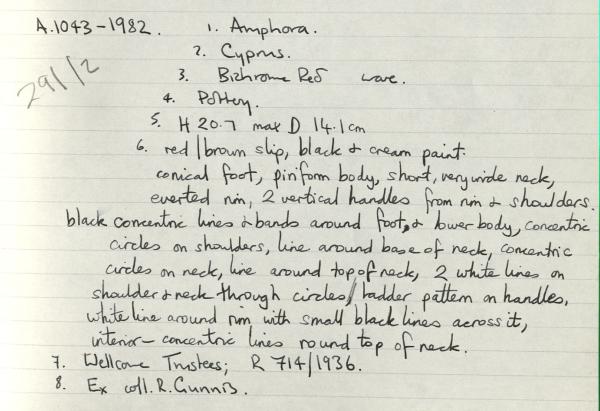 A.1043-1982. 1. Amphora.
29/12
2. Cyprus.
3. Bichrome Red ware.
4. Pottery.
5. H 20.7 max D 14.1cm
6. red/brown slip, black & cream paint.
conical foot, piriform body, short, very wide neck,
everted rim, 2 vertical handles from rim & shoulders.
black concentric lines & bands around foot, & lower body, concentric
circles on shoulders, line around base of neck, concentric
circles on neck, line around top of neck, 2 white lines on
shoulder & neck through circles, ladder pattern on handles,
white line around rim with small black lines across it,
interior - concentric lines round top of neck.
7. Wellcome Trustees; R 714/1936.
8. Ex coll. R. Gunnis.